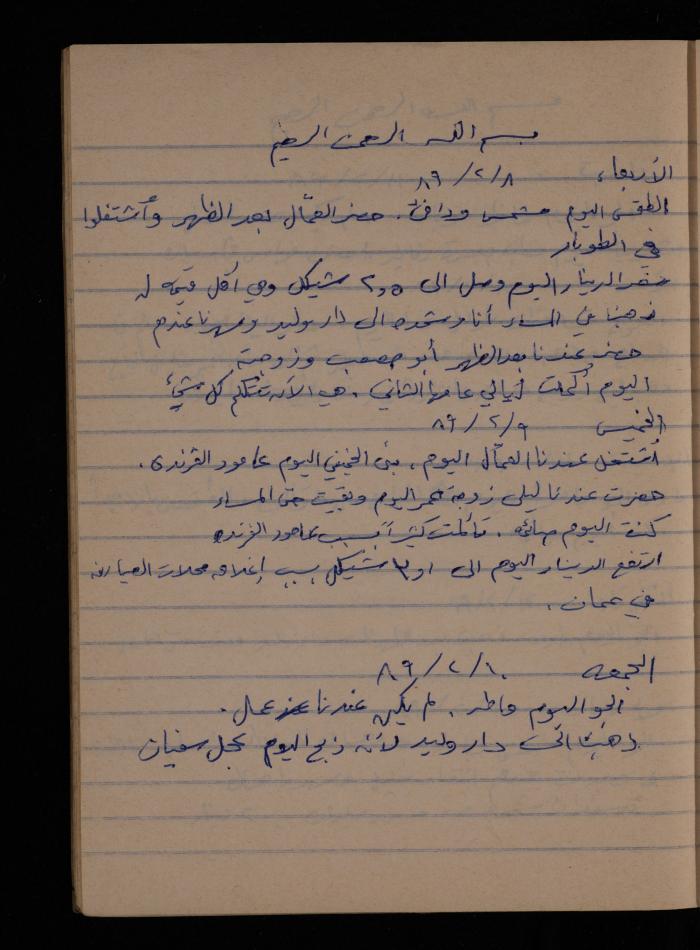 بسم الله الرحمن الرحيم
الأربعاء ٨ / ٢ / ٨٩
الطقس اليوم مشمس ودافئ. حضر العمّال بعد الظهر وأشتغلوا
في الطوبار
سعر الدينار اليوم وصل الى ٢,٥ شيكل وهي أقل قيمة له
ذهبنا في المساء أنا و الى دار وليد وسهرنا عندهم
حضر عندنا بعد الظهر أبو مصعب وزوجته
اليوم أكملت ليالي عامها الثاني. هي الآن تتكلم كل شيئ
الخميس ٩ / ٢ / ٨٩
أشتغل عندنا العمّال اليوم. بنى اليوم عامود الڤرندة.
حضرت عندنا ليلى زوجة اليوم وبقيت حتى المساء
كنت اليوم صائمه. تألمت كثيراً بسبب عامود الڤرنده
ارتفع الدينار اليوم الى ٣,١ شيكل بسبب إغلاق محلات الصيارفه
في عمان.
الجمعه ١٠ / ٢ / ٨٩
الجو اليوم ماطر. لم يكن عندنا عمال.
ذهبت الى دار وليد لأنه ذبح اليوم عجل سفيان